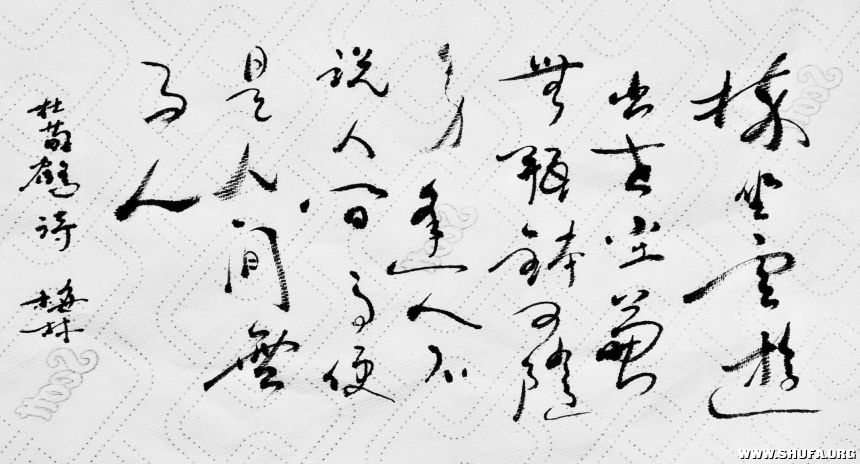 枿坐雲遊
出世尘兼
無瓶鉢可隨
身逢人不
說人間事便
是人間無
事人
杜荀鶴詩 梅林
WWW.SHUFA.ORG